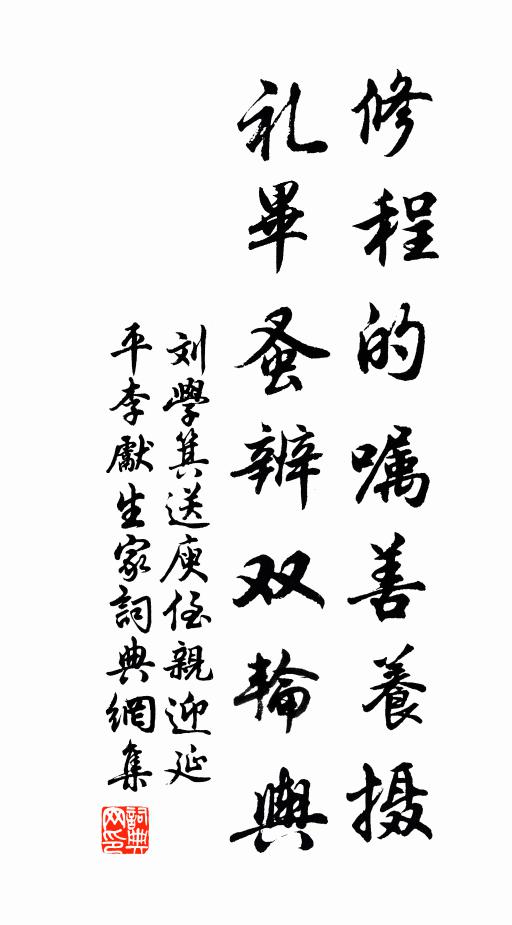 修程的嘱善養摄
礼畢蚤辨双輪輿
刘學箕送庾侄親迎延
平李獻生家詞典網集
詞典網印